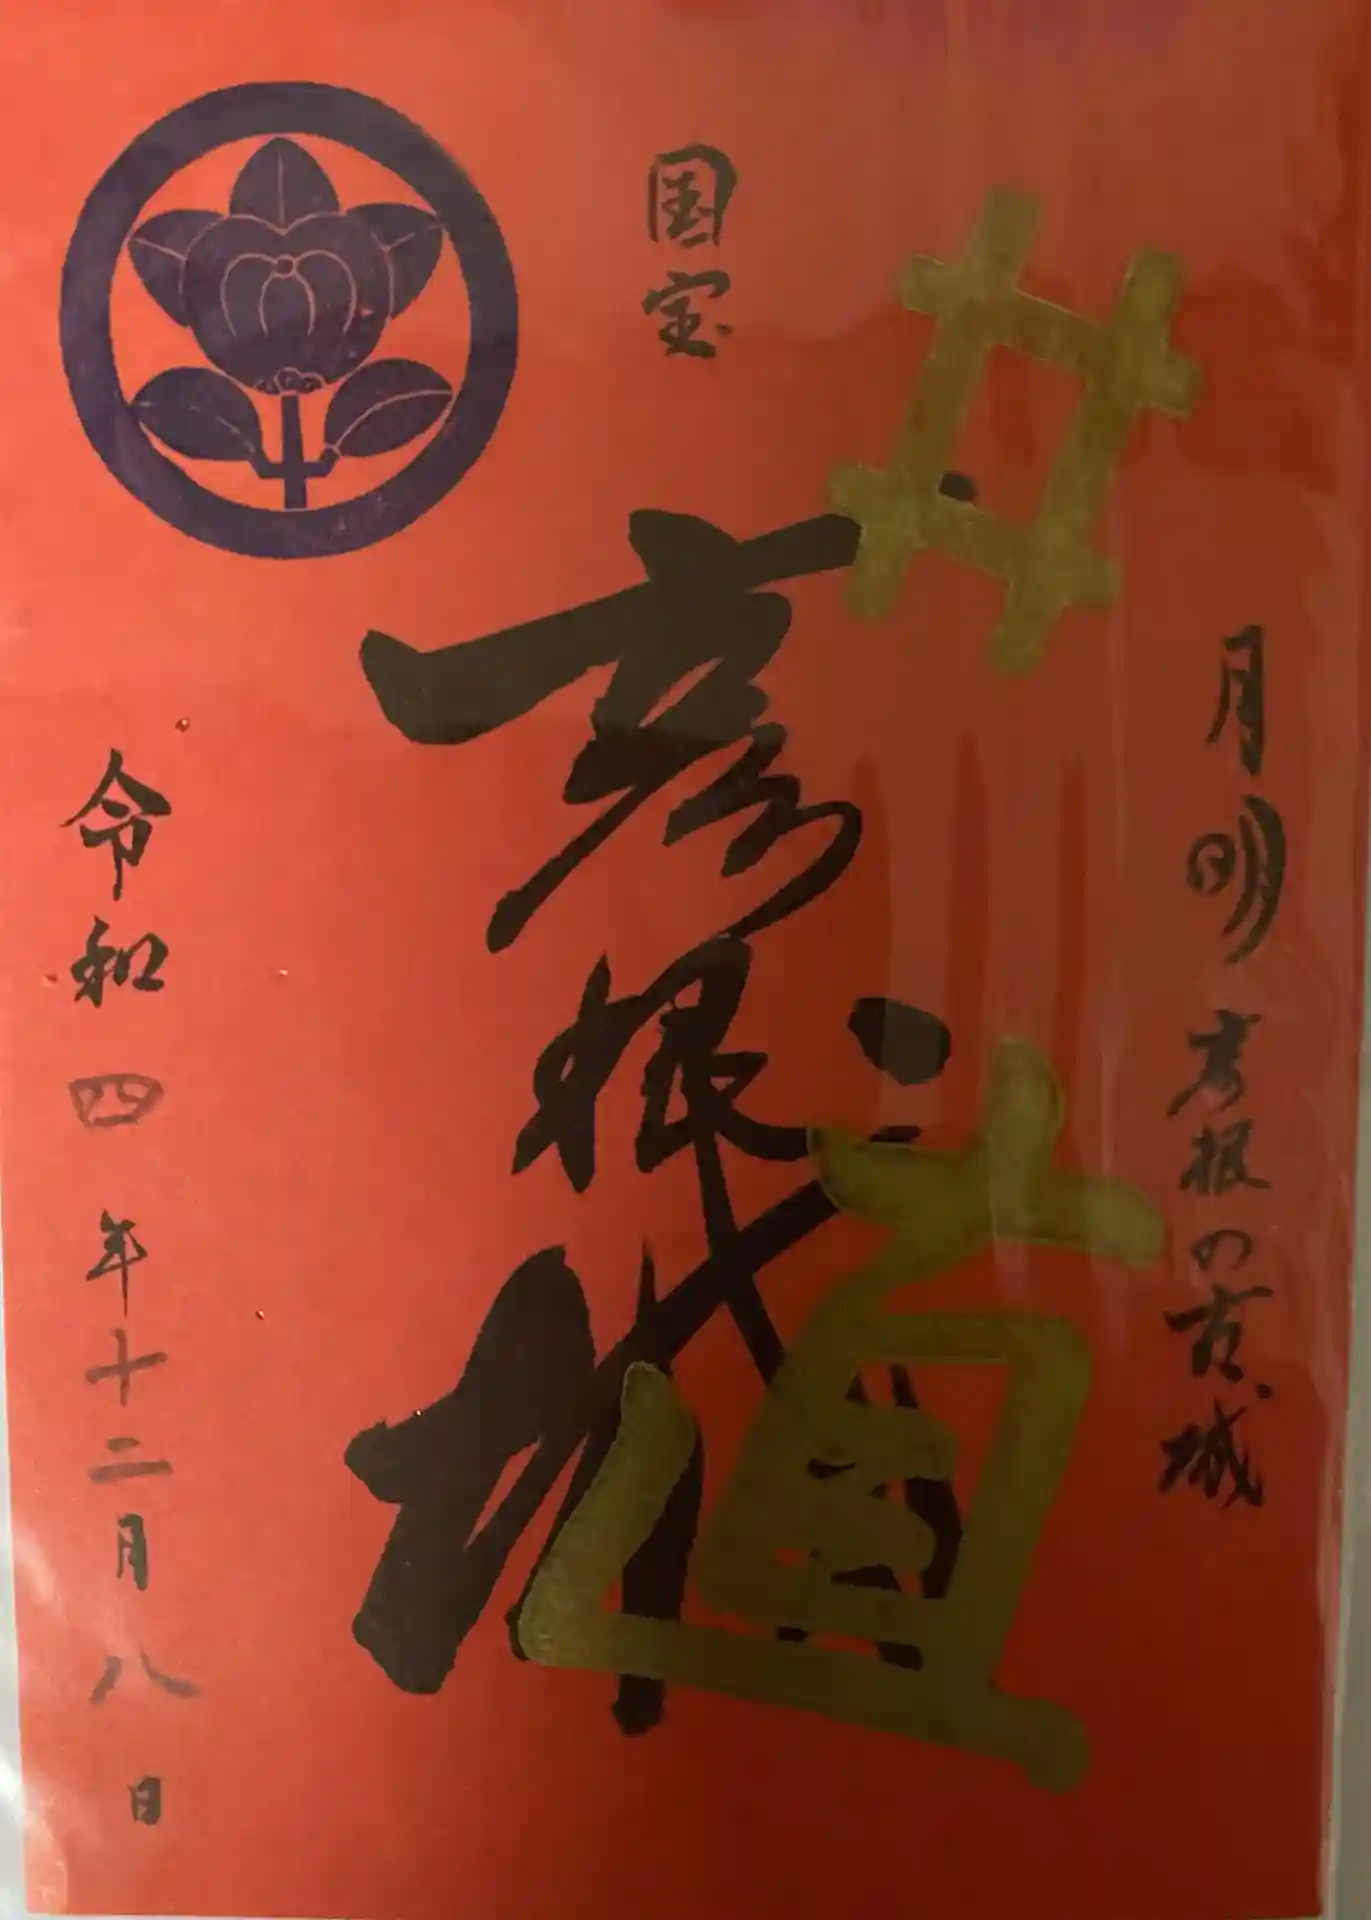 月明彦根の古城
井直
国宝
彦根城
令和四年十二月八日